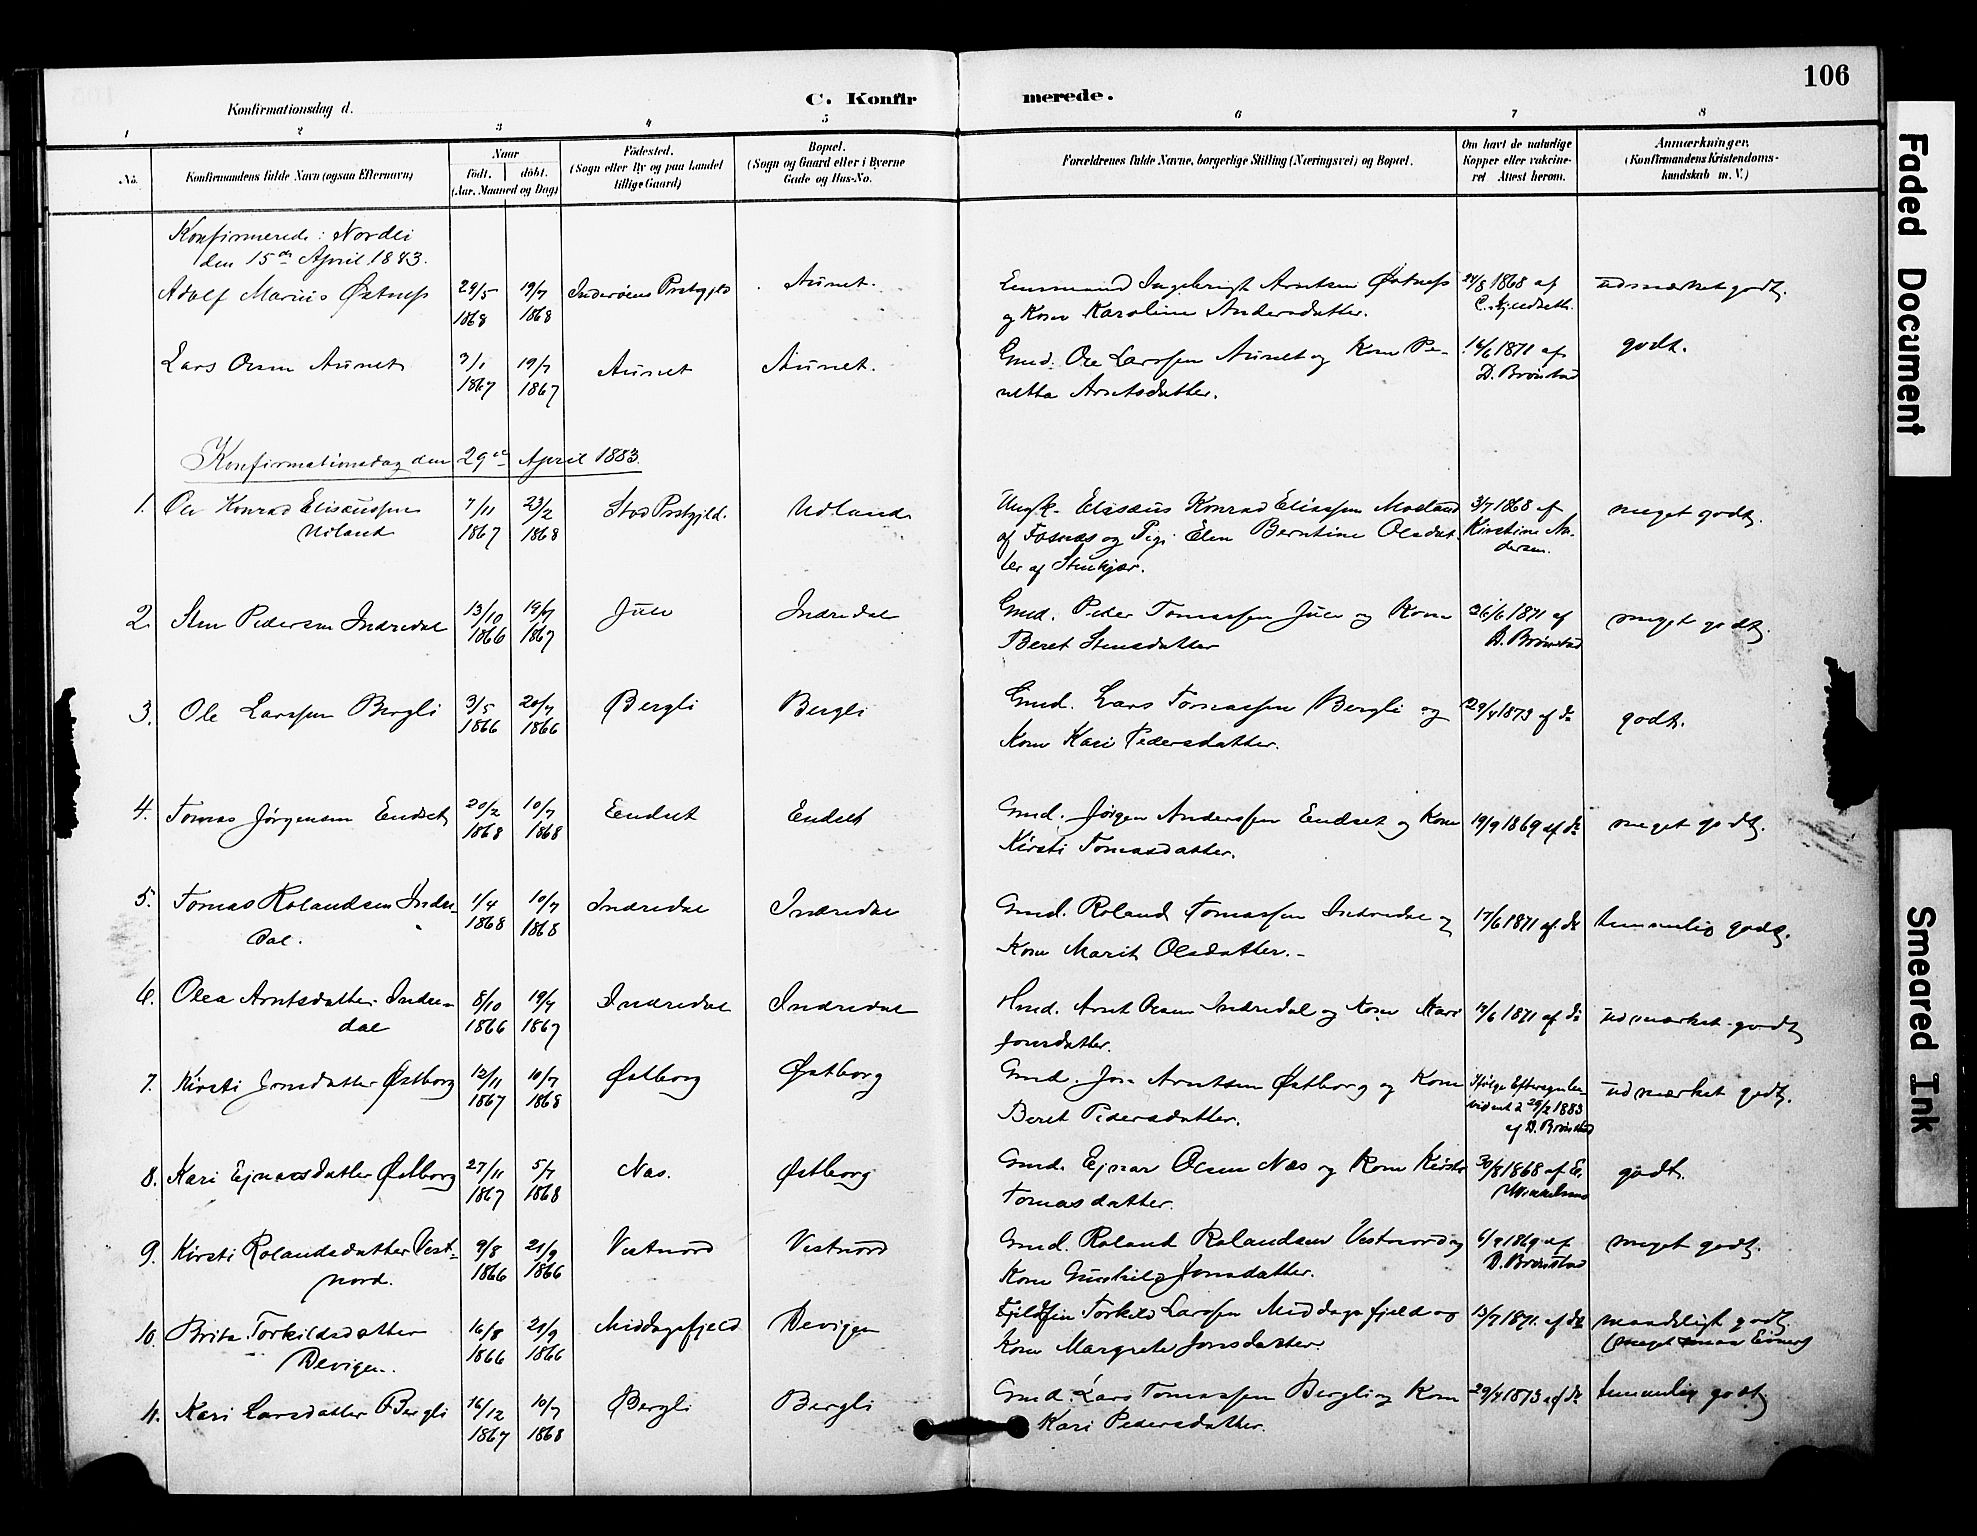 106
C. Konfirmerede.
Konfirmationsdag d.
1 2 3 4 5 6 7 8
No.
Konfirmandens fulde Navn (ogsaa Efternavn)
Naar
födt. döbt.
(Aar, Maaned og Dag)
Födested.
(Sogn eller By og paa Landet
tillige Gaard)
Bopæl.
(Sogn og Gaard eller i Byerne
Gade og Hus-No.
Forældrenes fulde Navne, borgerlige Stilling (Næringsvei) og Bopæl.
Om havt de naturlige
Kopper eller vakcine-
ret Attest herom.
Anmærkninger,
(Konfirmandens Kristendoms-
kundskab m. V.)
Konfirmerede i Nordli
den 15de April 1883.
Adolf Marius Østnes 29/5 19/7 Inderøens Prstgjeld Aunet. Ingebrigt Arntsen Østnes 24/8 1868 af udmærket godt.
1868 1868 og Kone Karoline Andersdatter.
Lars Olsen Aunet 3/1 19/7 Aunet Aunet. Gmd. Ole Larssen Aunet og Kone Pe- 16/6 1871 af godt.
1867 1867 netta Arntsdatter. D. Brønstad
Konfirmationsdag den 29de April 1883.
1. Ole Konrad Elisæussen 7/11 23/2 Stod Prstgjld. Udland Ungk. Elisæus Konrad Eliassen Moeland 3/7 1868 af meget godt.
Udland 1867 1868 af Fosnæs og Pige Elen Berntine Olsdat- Kirstine An-
ter af Stenkjær. dersen.
2. Sten Pedersen Indredal 13/10 19/7 Jule Indredal Gmd. Peder Tomassen Jule og Kone 26/6 1871 af meget godt.
1866 1867 Beret Stensdatter D. Brønstad
3. Ole Larssen Bergli 3/5 20/7 Bergli Bergli Gmd. Lars Tomassen Bergli og 29/4 1873 af do godt.
1866 1866 Kone Kari Pedersdatter.
4. Tomas Jørgensen Endset 20/2 10/7 Endset Endset Gmd. Jørgen Anderssen Endset og Kone 19/9 1869 af do meget godt.
1868 1868 Kirsti Tomasdatter.
5. Tomas Rolandsen Indre- 1/4 10/7 Indredal Indredal Gmd. Roland Tomassen Indredal og 17/6 1871 af do temmelig godt.
dal. 1868 1868 Kone Marit Olsdatter.
6. Olea Arntsdatter Indre- 8/10 19/7 Indredal Indredal Hmd. Arnt Olsen Indredal og Kone Kari 1871 af do udmærket godt
dal 1866 1867 Jonsdatter.
7. Kirsti Jonsdatter Østborg 12/11 10/7 Østborg Østborg Gmd. Jon Arntsen Østborg og Kone Ifølge udmærket godt.
1867 1868 Beret Pedersdatter. 1883
af D. Brønstad
8. Kari Ejnarsdatter Østborg 27/11 5/7 Næs. Østborg Gmd. Ejnar Olsen Næs og Kone Kirsti 30/8 1868 af godt.
1867 1868 Tomasdatter.
9. Kirsti Rolandsdatter Vest- 9/8 21/9 Vestnord Vestnord Gmd. Roland Rolandsen Vestnord og 6/9 1869 af meget godt.
nord. 1866 1866 Kone Gunhild Jonsdatter. D. Brønstad
10. Brita Torkildsdatter 16/8 21/9 Middagsfjeld Devigen Torkild Larssen Middagsfjeld og 13/7 1871. af do maadeligt godt
Devigen. 1866 1866 Kone Margrete Jonsdatter. (meget smaa Evner)
11. Kari Larsdatter Bergli 16/12 10/7 Bergli Bergli Gmd. Lars Tomassen Bergli og Kone 29/4 1873 af do temmelig godt
1867 1868 Kari Pedersdatter.
Faded Document
Smeared Ink